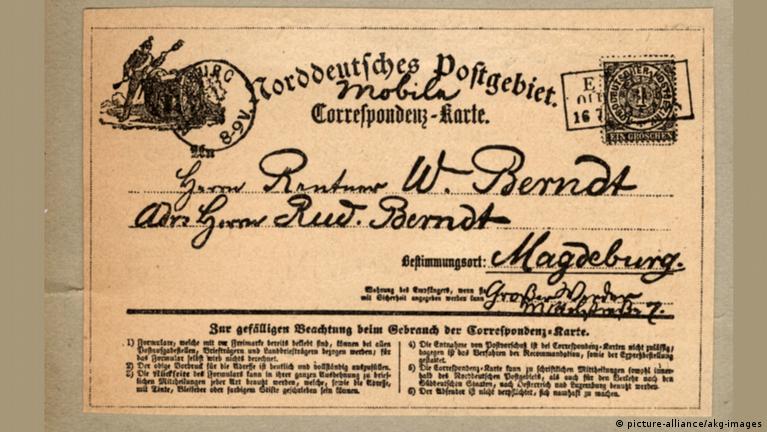 Norddeutsches Postgebiet.
Mobila
Correspondenz-Karte.
BURG
8-9V.
16 7
NORDDEUTSCHER POSTBEZIRK
1
EIN GROSCHEN
An
Herrn Rentner W. Berndt
Adr: Herrn Rud. Berndt
Bestimmungsort: Magdeburg.
Wohnung des Empfängers, wenn sie
mit Sicherheit angegeben werden kann
Großer Werder
Mittelstraße 7.
Zur gefälligen Beachtung beim Gebrauch der Correspondenz-Karte.
1) Formulare, welche mit der Freimarke bereits beklebt sind, können bei allen
Postanstalten, Briefträgern und Landbriefträgern bezogen werden; für
das Formular selbst wird nichts berechnet.
2) Der obige Vordruck für die Adresse ist deutlich und vollständig auszufüllen.
3) Die Rückseite des Formulars kann in ihrer ganzen Ausdehnung zu brief-
lichen Mittheilungen jeder Art benutzt werden, welche, sowie die Adresse,
mit Tinte, Bleifeder oder farbigem Stifte geschrieben sein können.
4) Die Entnahme von Postvorschuß ist bei Correspondenz-Karten nicht zulässig;
dagegen ist das Verfahren der Recommandation, sowie der Expreßbestellung
gestattet.
5) Die Correspondenz-Karte kann zu schriftlichen Mittheilungen sowohl inner-
halb des Norddeutschen Postgebiets, als auch für den Verkehr nach den
Süddeutschen Staaten, nach Oesterreich und Luxemburg benutzt werden.
6) Der Absender ist nicht verpflichtet, sich namhaft zu machen.
© picture-alliance/akg-images